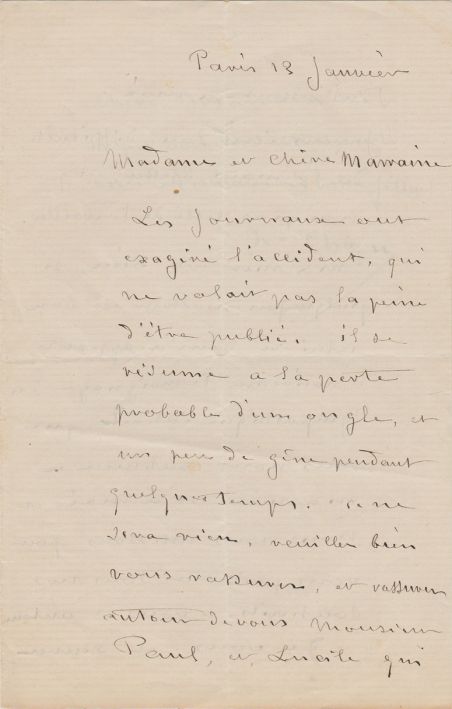 Paris 13 Janvier
Madame et chère Marraine
Les Journaux ont
exagéré l'accident, qui
ne valait pas la peine
d'être publié. il se
résume a la perte
probable d'un ongle, et
un peu de gêne pendant
quelques temps. ce ne
sera rien, veuillez bien
vous rassurer, et rassurer
autour de vous Monsieur
Paul, et Lucile qui